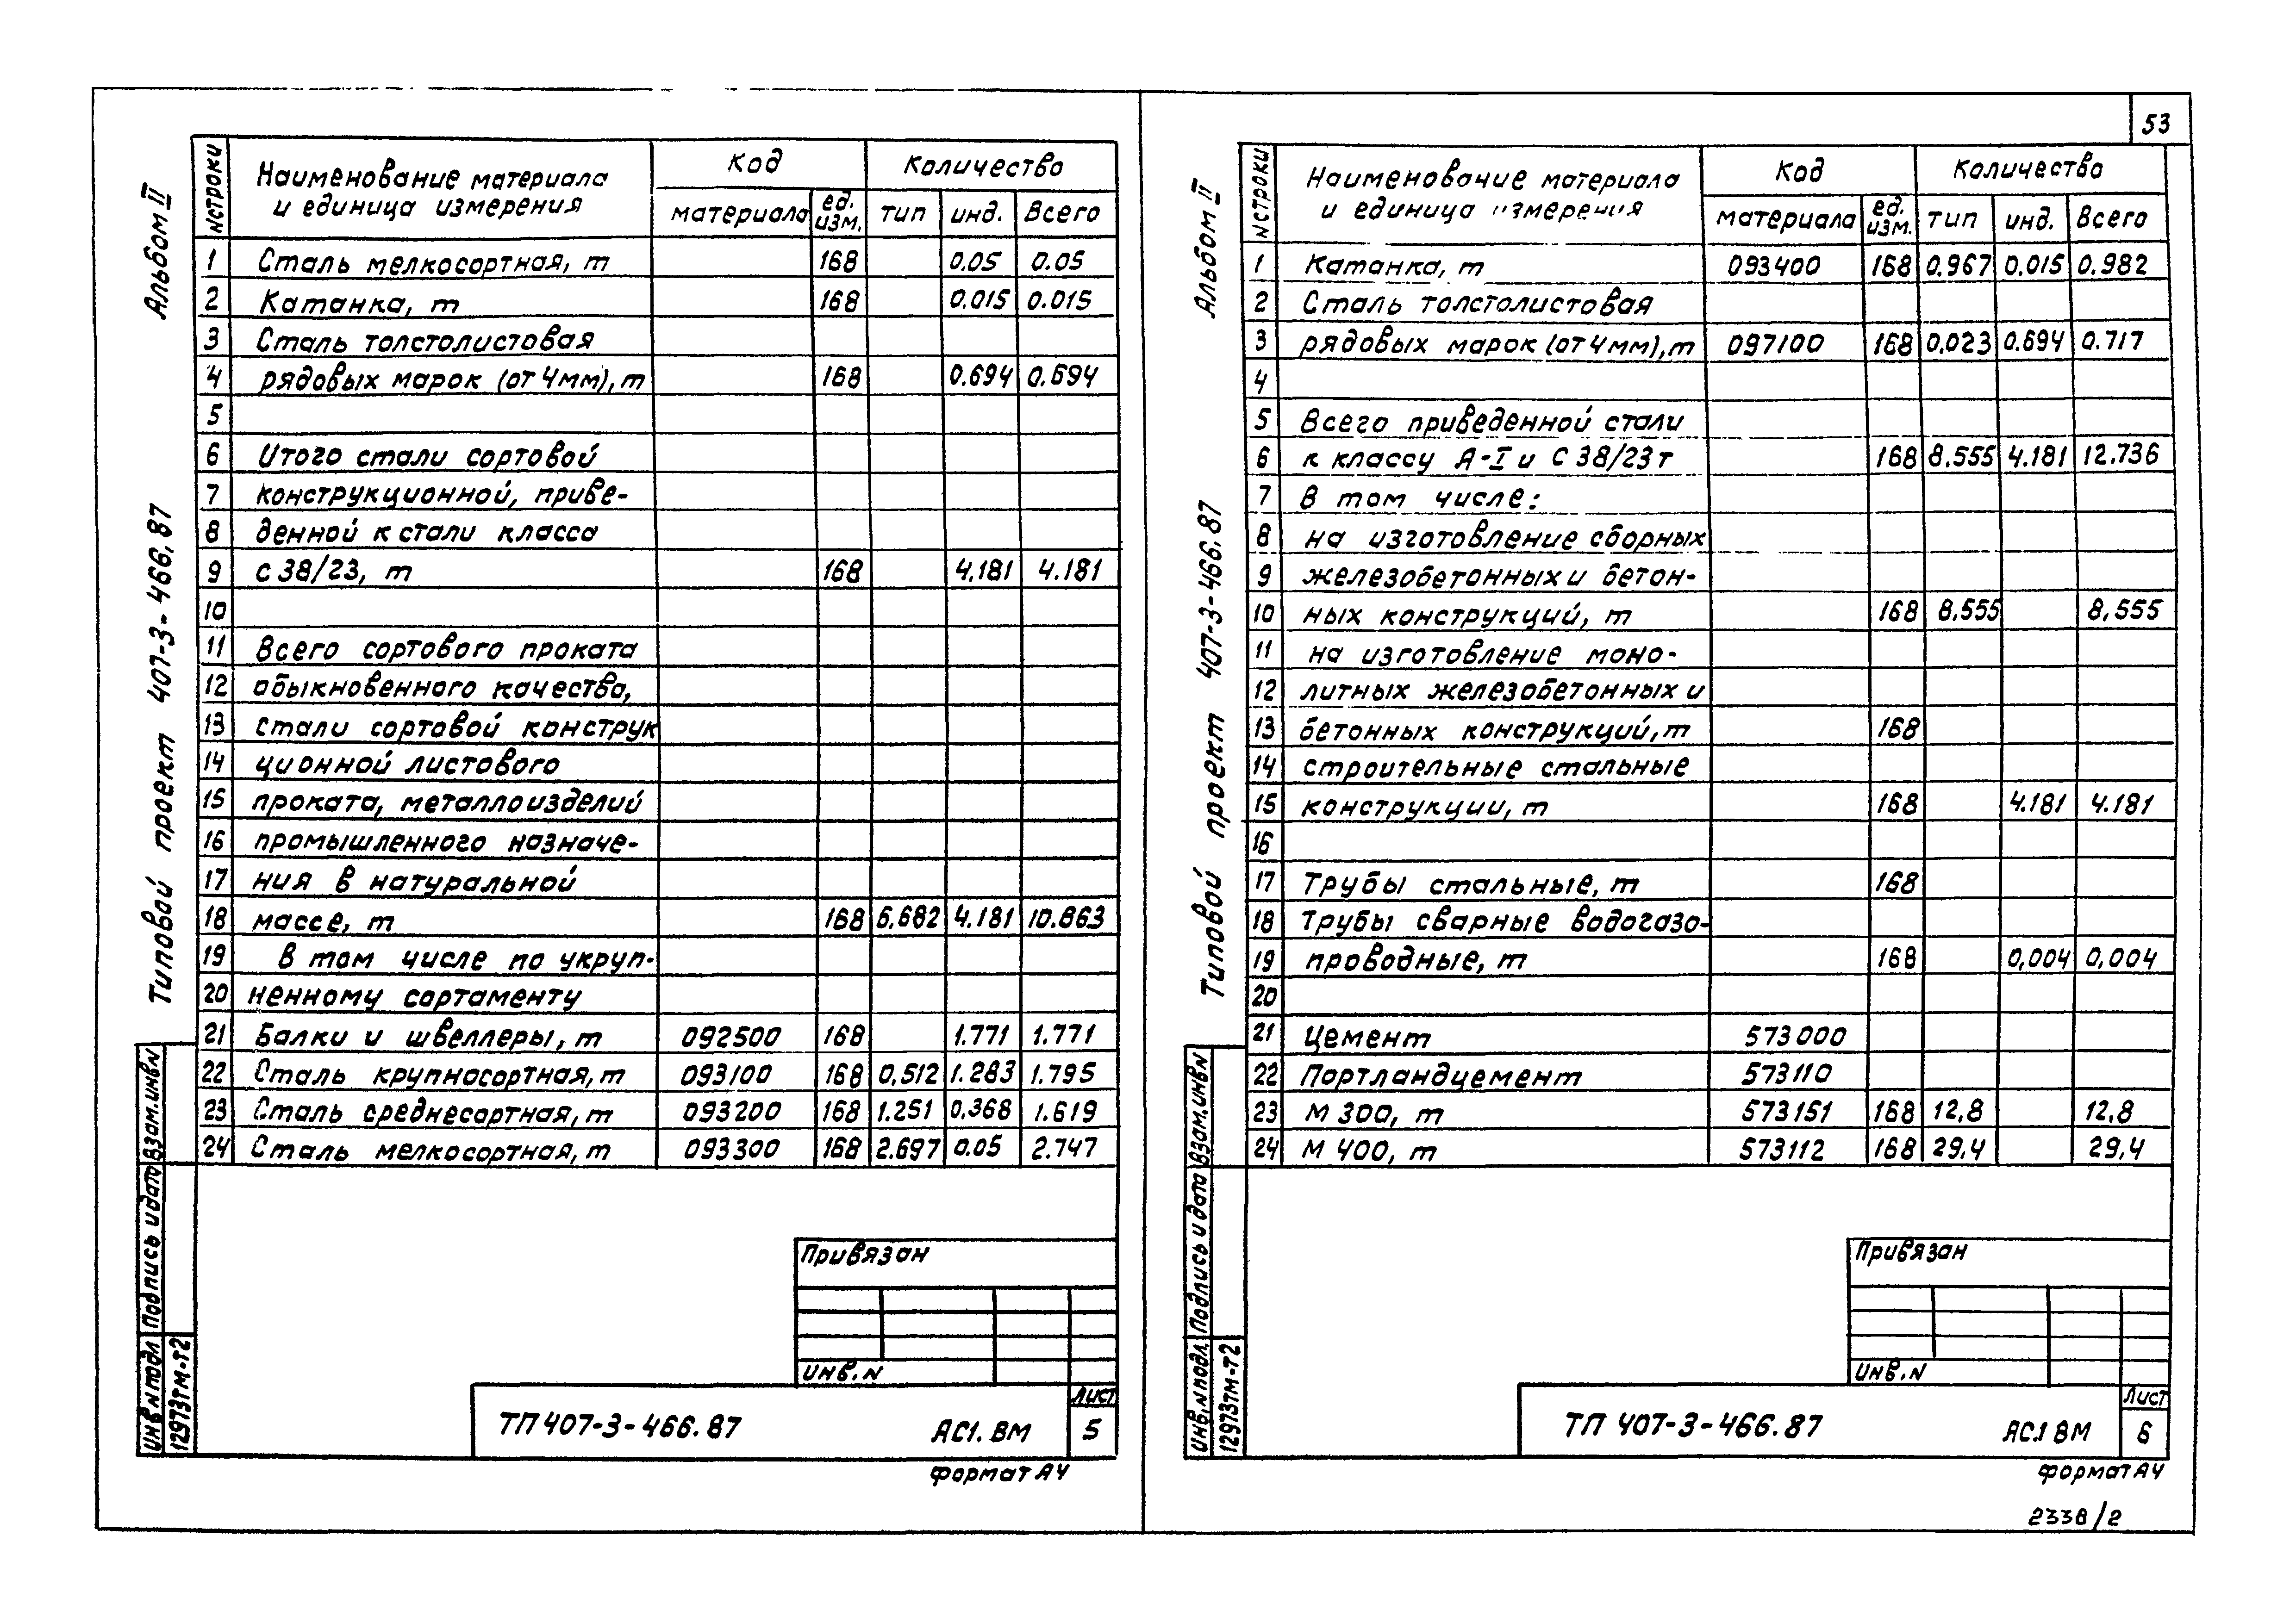 Альбом II
Типовой проект 407-3-466.87
N строки Наименование материала и единица измерения Код Количество
материала ед. изм. тип инд. Всего
1 Сталь мелкосортная, т 168 0.05 0.05
2 Катанка, т 168 0.015 0.015
3 Сталь толстолистовая
4 рядовых марок (от 4мм), т 168 0.694 0.694
5
6 Итого стали сортовой
7 конструкционной, приве-
8 денной к стали класса
9 с 38/23, т 168 4.181 4.181
10
11 Всего сортового проката
12 обыкновенного качества,
13 стали сортовой конструк
14 ционной листового
15 проката, металлоизделий
16 промышленного назначе-
17 ния в натуральной
18 массе, т 168 6.682 4.181 10.863
19 в том числе по укруп-
20 ненному сортаменту
21 Балки и швеллеры, т 092500 168 1.771 1.771
22 Сталь крупносортная, т 093100 168 0,512 1.283 1.795
23 Сталь среднесортная, т 093200 168 1.251 0.368 1.619
24 Сталь мелкосортная, т 093300 168 2.697 0.05 2.747
Взам. инв. N
Подпись и дата
Инв. N подл.
12973тм-т2
Привязан
Инв. N
ТП 407-3-466.87 АС1. ВМ
Лист
5
формат А4
53
Альбом II
Типовой проект 407-3-466.87
N строки Наименование материала и единица измерения Код Количество
материала ед. изм. тип инд. Всего
1 Катанка, т 093400 168 0.967 0.015 0.982
2 Сталь толстолистовая
3 рядовых марок (от 4мм), т 097100 168 0.023 0.694 0.717
4
5 Всего приведенной стали
6 к классу А-I и С 38/23 т 168 8.555 4.181 12.736
7 В том числе:
8 на изготовление сборных
9 железобетонных и бетон-
10 ных конструкций, т 168 8.555 8,555
11 на изготовление моно-
12 литных железобетонных и
13 бетонных конструкций, т 168
14 строительные стальные
15 конструкции, т 168 4.181 4.181
16
17 Трубы стальные, т 168
18 Трубы сварные водогазо-
19 проводные, т 168 0,004 0,004
20
21 Цемент 573000
22 Портландцемент 573110
23 М 300, т 573151 168 12,8 12,8
24 М 400, т 573112 168 29,4 29,4
Взам. инв N
Подпись и дата
Инв. N подл.
12973тм-т2
Привязан
Инв. N
ТП 407-3-466.87 АС.1 ВМ
Лист
6
формат А4
2338/2